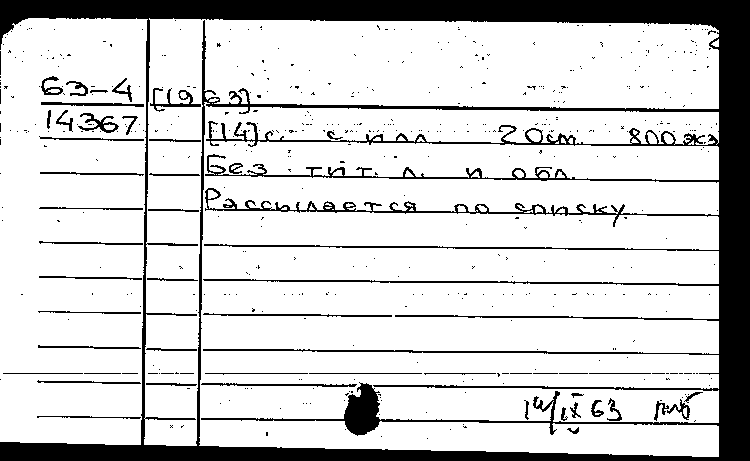 2
63-4 [1963].
14367 [14]с. с илл. 20см. 800 экз
Без тит. л. и обл.
Рассылается по списку.
IX 63